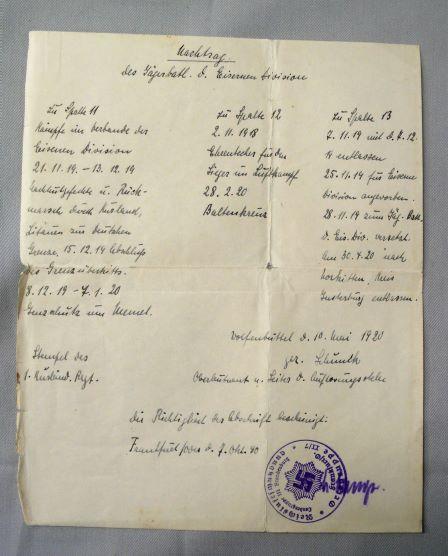 Nachtrag
des Jägerbatl. d. Eisernen Division
zu Spalte 11
Kämpfe im Verbande des
Eisernen Division
21.11.19. – 13.12.19
Nachhutgefechte u. Rück-
marsch durch Kurland,
Litauen zur deutschen
Grenze. 15.12.19 Abschluß
des Grenzübertritts.
8.12.19 – 7.1.20
Grenzschutz um Memel.
Stempel des
1. Kurländ. Regt.
zu Spalte 12
2.11.1918
Ehrenbecher für den
Sieger im Luftkampf
28.2.20
Baltenkreuz
zu Spalte 13
7.11.19 mit d.
entlassen
25.11.19 für Eiserne
Division angeworben.
28.11.19 zum Jäg. Batl.
d. Eis. Div. versetzt.
Am 30.4.20 nach
Norkitten, Kreis
Insterburg entlassen.
Wolfenbüttel d. 10. Mai 1920
gez.
Oberleutnant u. Leiter d. Auflösungsstelle
Die Richtigkeit der Abschrift bescheinigt:
Frankfurt/Oder d. 7. Okt. 40